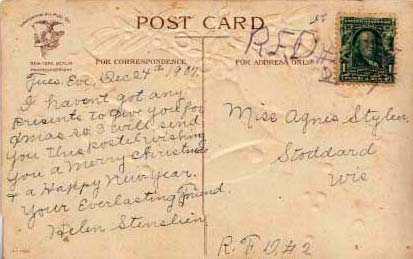 POST CARD
NEW-YORK, BERLIN
FOR CORRESPONDENCE
FOR ADDRESS ONLY
R.F.D.
Tues. Eve, Dec 24th 1907.
I haven't got any
presents to give you for
Xmas so I will send
you this postel wishing
you a Merry Christmas
& a Happy New Year.
Your Everlasting Friend.
Helen Stenslien
Miss Agnes Stylen
Stoddard
Wis
R.F.D. #2